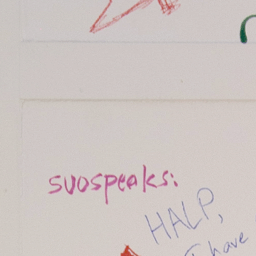 suospeaks:
HALP,
I have